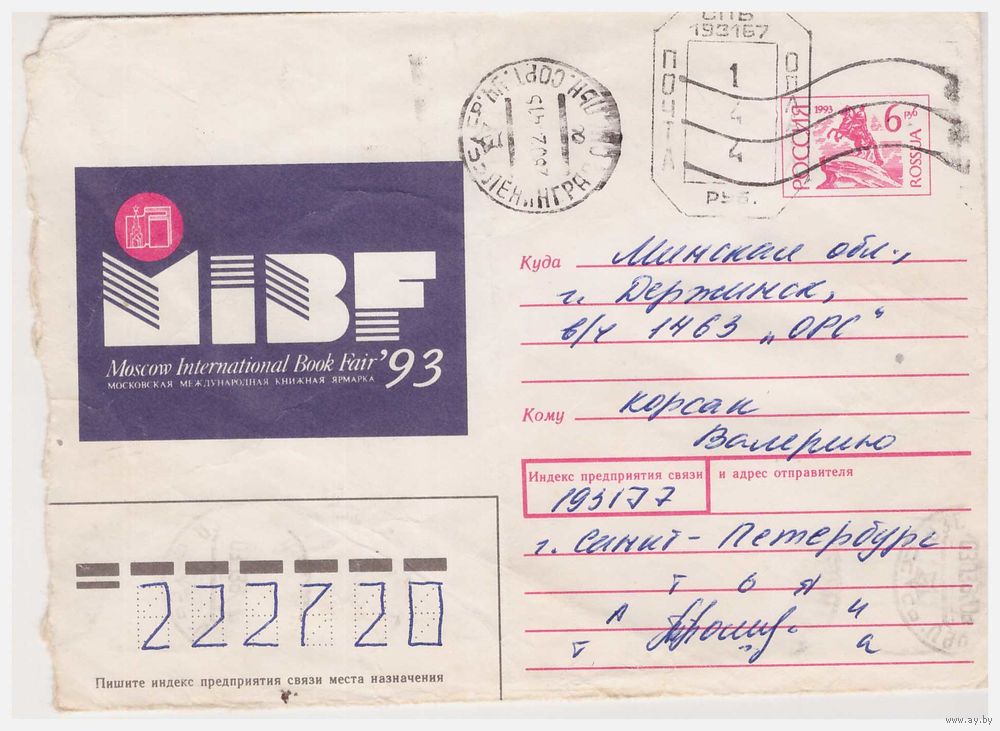 СПБ
193167
ПОЧТА
1
4
4
РУБ.
РОССИЯ
1993
6 руб
ROSSIJA
MIBF
Moscow International Book Fair '93
МОСКОВСКАЯ МЕЖДУНАРОДНАЯ КНИЖНАЯ ЯРМАРКА
Куда Минская обл.,
г. Держинск,
в/ч 1463 „ОРС“
Кому Корсак
Валерию
Индекс предприятия связи и адрес отправителя
193177
г. Санкт-Петербург
222720
Пишите индекс предприятия связи места назначения
www.ay.by